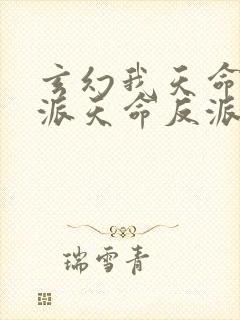 玄幻我天命
派天命反派
瑞雪青